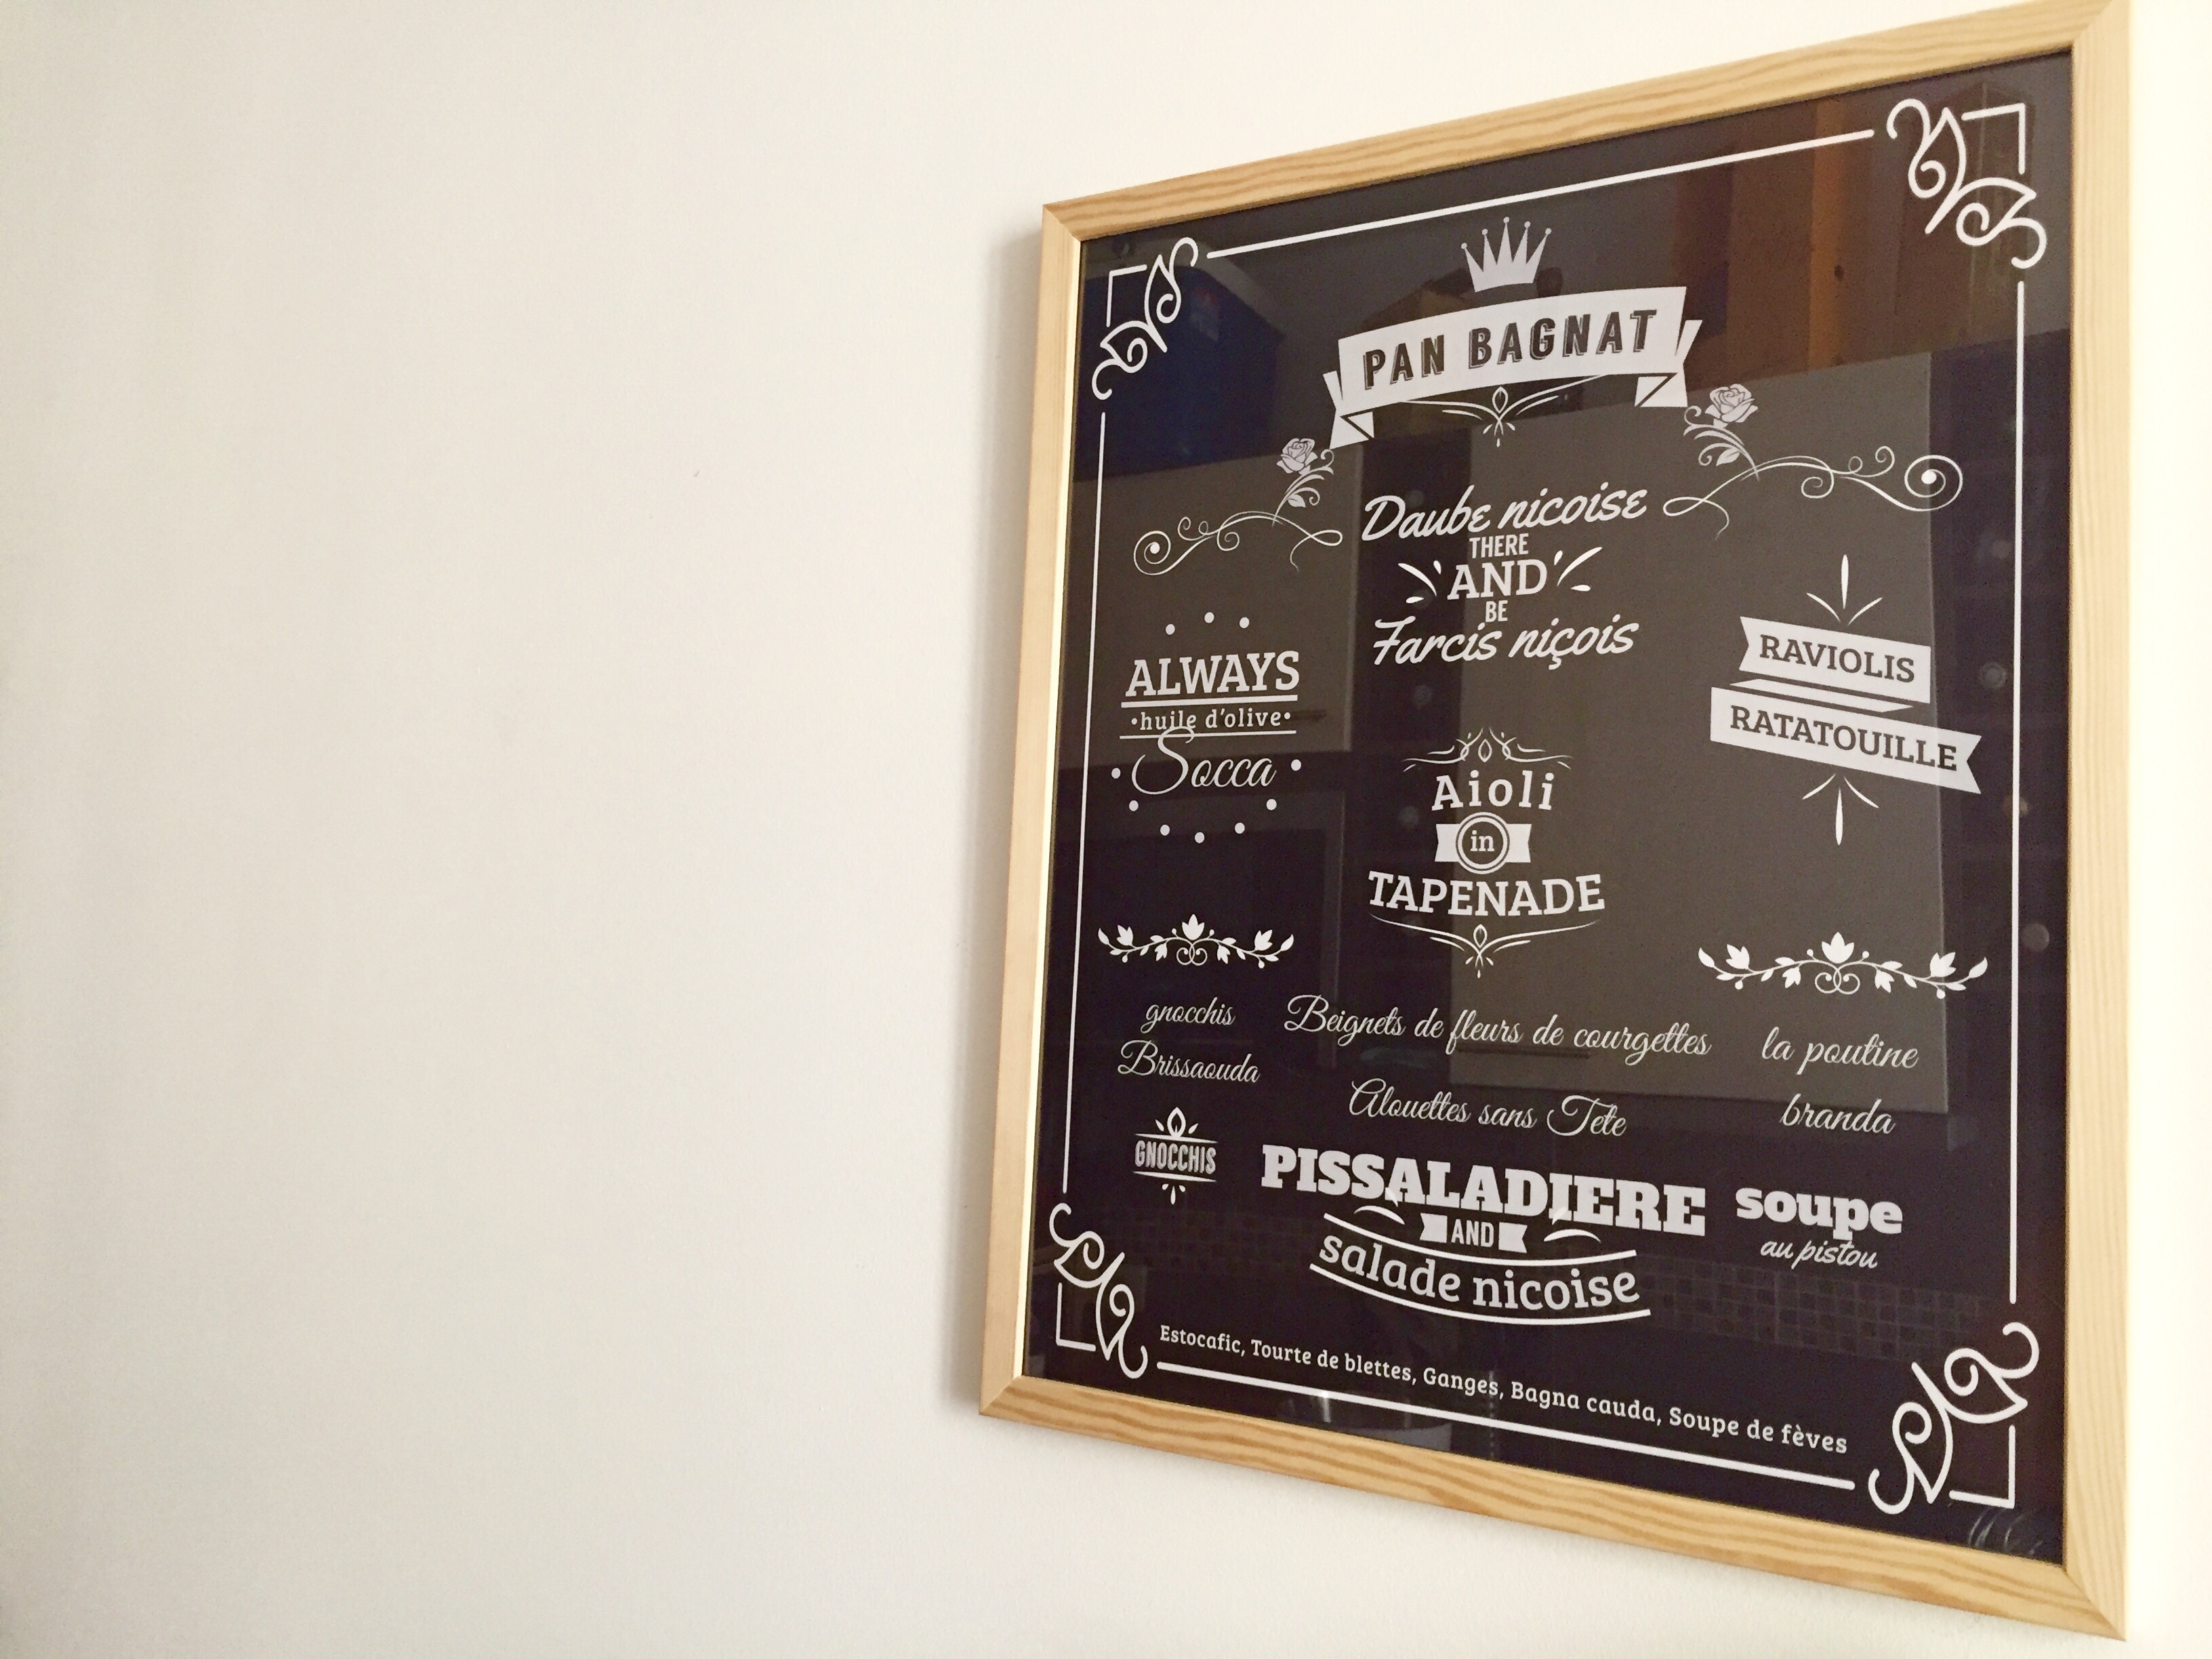 PAN BAGNAT
Daube nicoise
THERE
AND
BE
Farcis niçois
ALWAYS
•huile d'olive•
Socca
RAVIOLIS
RATATOUILLE
Aioli
in
TAPENADE
gnocchis
Brissaouda
Beignets de fleurs de courgettes
Alouettes sans Tete
la poutine
branda
GNOCCHIS
PISSALADIERE
AND
salade nicoise
soupe
au pistou
Estocafic, Tourte de blettes, Ganges, Bagna cauda, Soupe de fèves